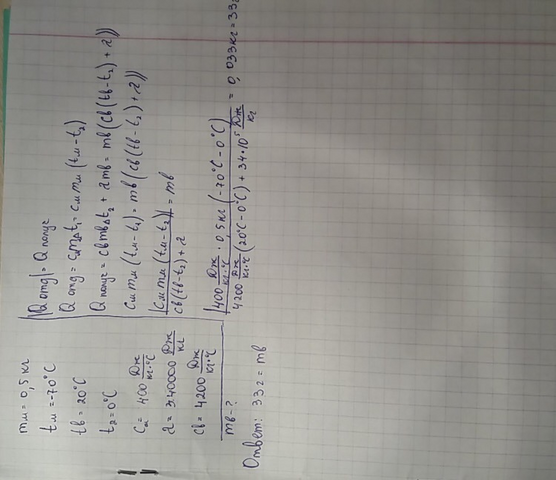 mм = 0,5 кг
tм = -70°C
tв = 20°C
t₂ = 0°C
Cм = 400 Дж/кг·°C
λ = 340000 Дж/кг
Cв = 4200 Дж/кг·°C
mв - ?
|Q отд| = Q получ
Q отд = cмmΔt₁ = cм mм (tм - t₂)
Q получ = cв mв Δt₂ + λ mв = mв (cв (tв - t₂) + λ))
cм mм (tм - t₂) = mв (cв (tв - t₂) + λ))
|cм mм (tм - t₂)| / cв (tв - t₂) + λ = mв
|400 Дж/кг·°C · 0,5 кг (-70°C - 0°C)| / 4200 Дж/кг·°C (20°C - 0°C) + 3,4·10⁵ Дж/кг = 0,033 кг = 33 г
Ответ: 33 г = mв